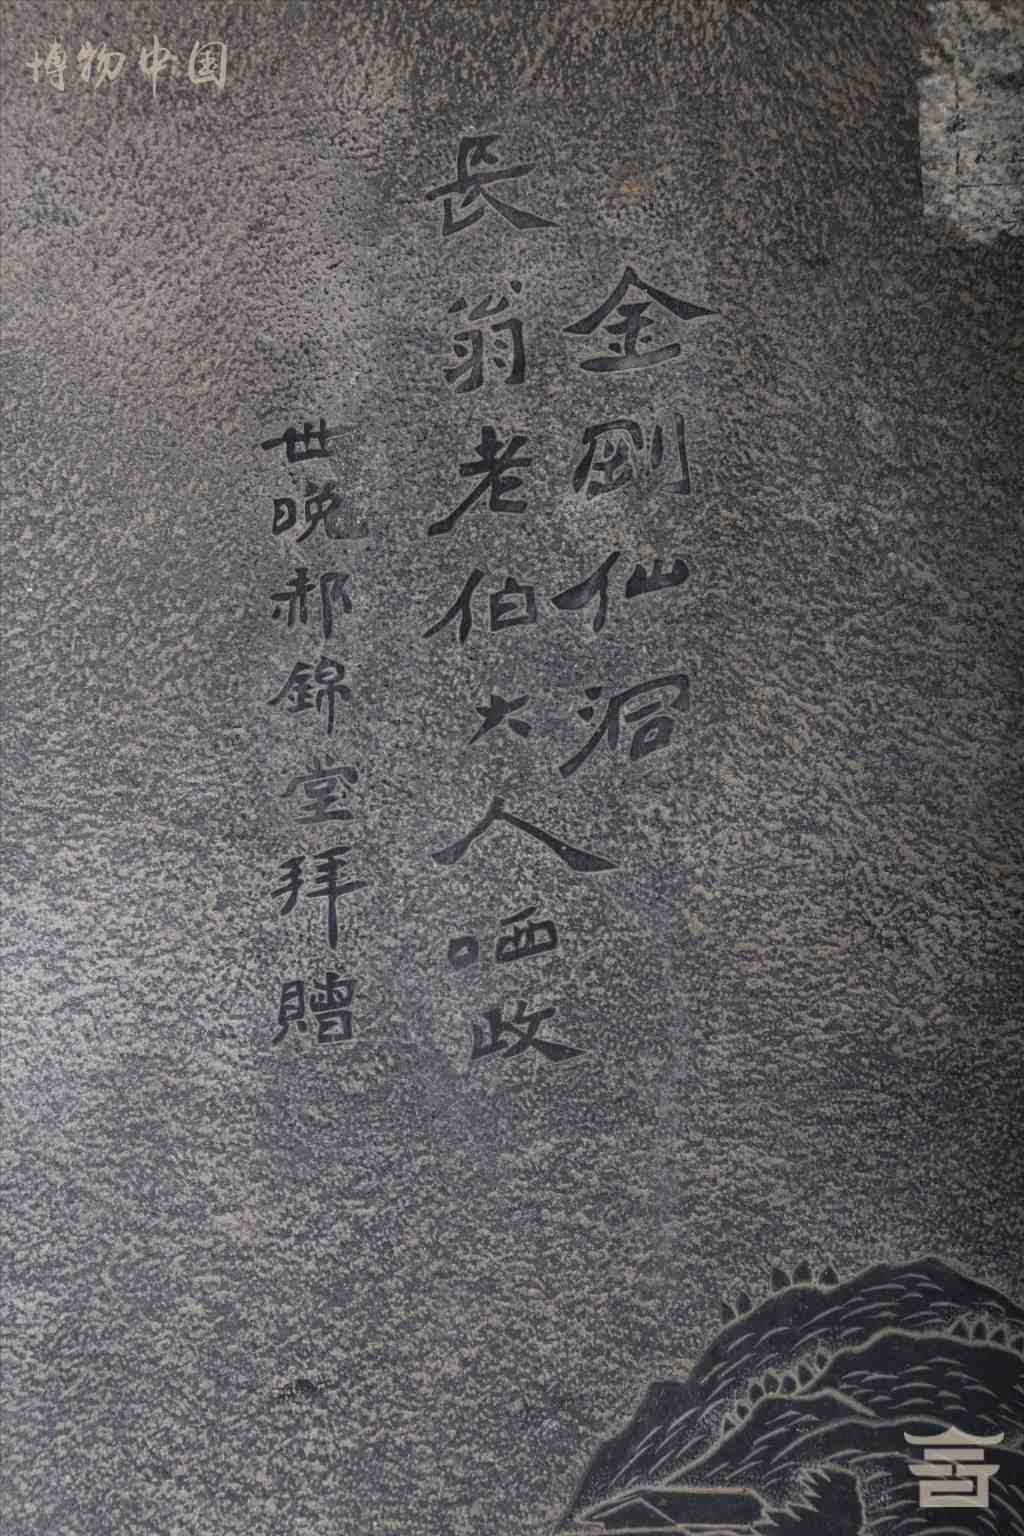 博物中国
金剛仙洞
長翁老伯大人哂政
世晚郝錦堂拜贈